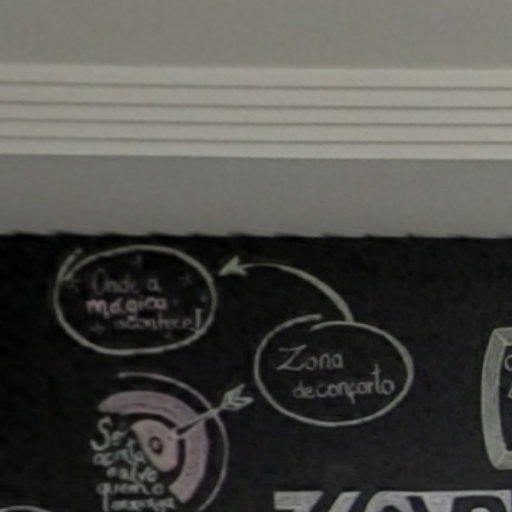 Onde a
mágica
acontece!
Zona
de conforto
Se
acerta
o alvo
quem o